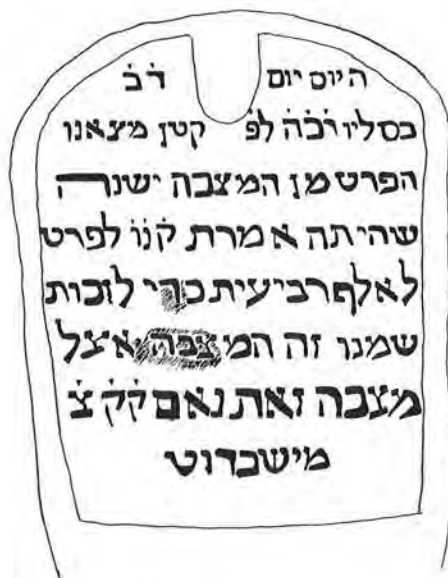 היום יום ד̇ב̇
כסליו ר̇כ̇ה̇ לפ̇ קטן מצאנו
הפרט מן המצבה ישנה
שהיתה אמרת ק̇נ̇ו̇ לפרט
לאלף רביעית כדי לזכות
שמנו זה המצבה אצל
מצבה זאת נאם ק̇ק̇ צ̇
מישברוט